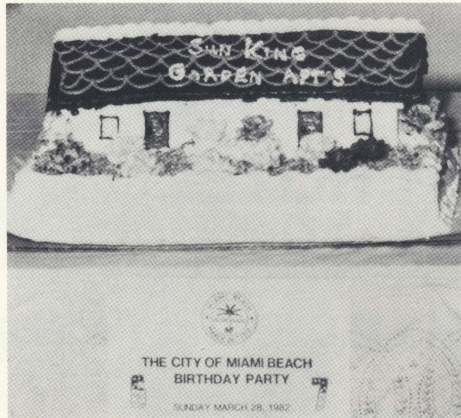 SUN KING
GARDEN APT'S
THE CITY OF MIAMI BEACH
BIRTHDAY PARTY
SUNDAY MARCH 28, 1982